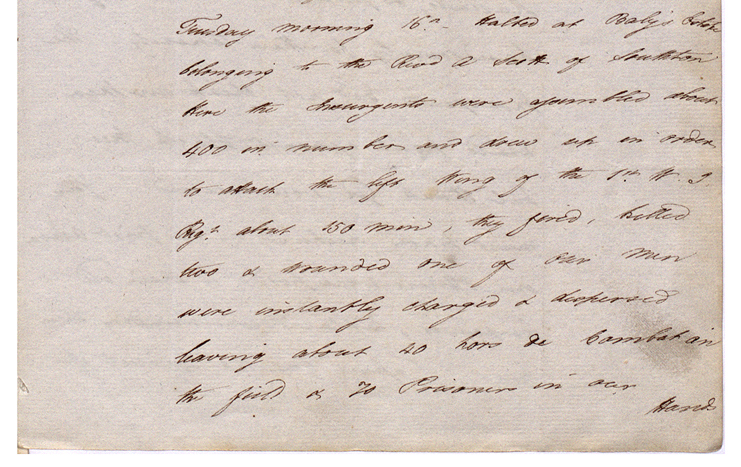 Tuesday morning 16th Halted at Baly's Estate
belonging to the Revd A Scott of Southton
Here the Insurgents were assembled about
400 in number and drew up in order
to attack the left Wing of the 1st W. I.
Regt about 150 men, they fired, killed
two & wounded one of our men
were instantly charged & dispersed
leaving about 40 hors de Combat in
the field & 70 Prisoners in our
Hands